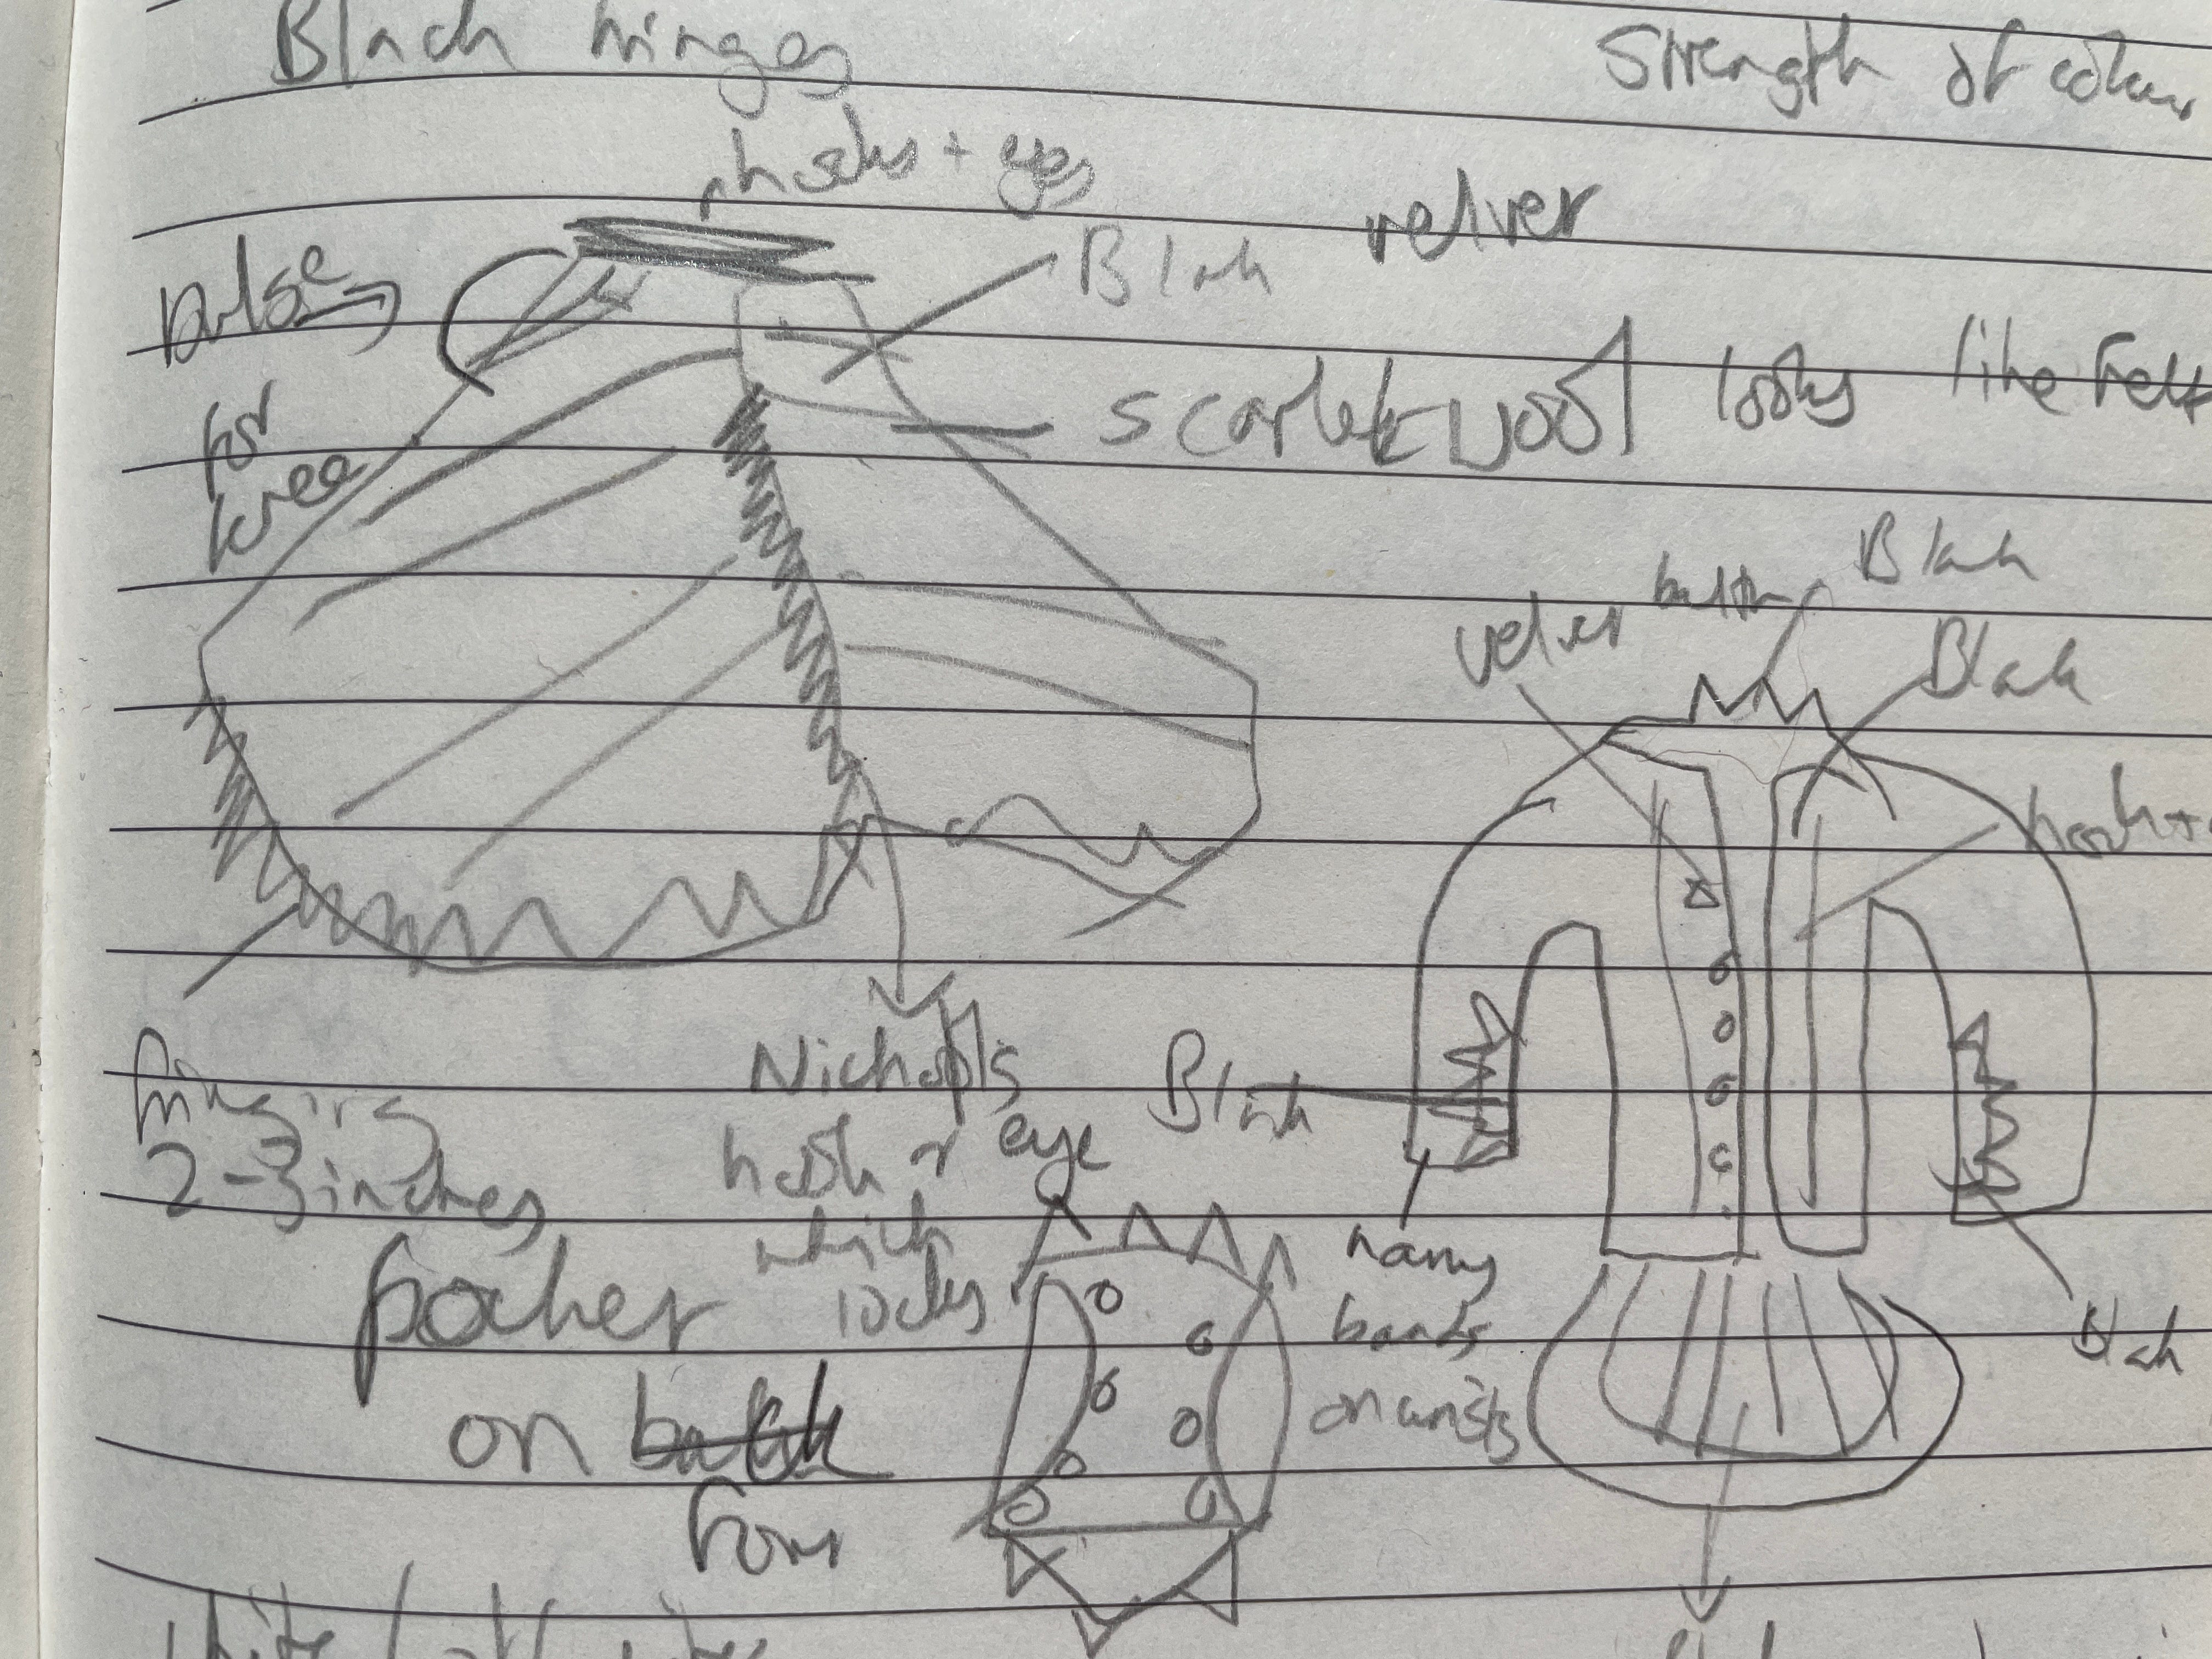 Black fringes
Strength of colour
hooks + eyes
Black velvet
pulse
for
knee
scarlet wool looks like felt
Black
velvet button
Black
hook +
fringing
2-3 inches
Nichols
hook + eye
which
locks
Black
pocket
on back
From
narrow
bands
on wrists
Black